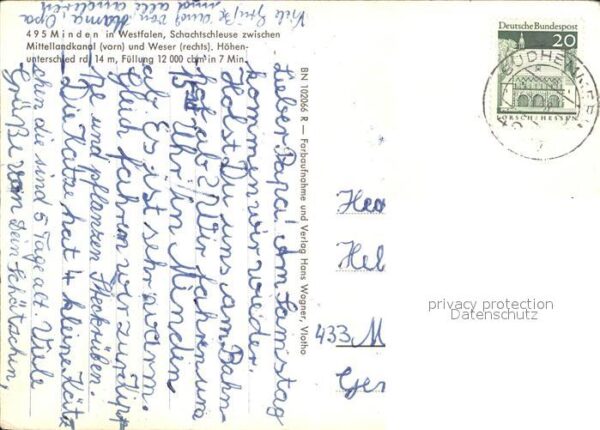 Viele Grüße auch von Mama, Opa
und alle anderen
495 Minden in Westfalen, Schachtschleuse zwischen
Mittellandkanal (vorn) und Weser (rechts). Höhen-
unterschied rd. 14 m, Füllung 12 000 cbm in 7 Min.
Lieber Papa! Am Samstag
kommen wir wieder.
Holst Du uns am Bahn-
hof ab? Wir fahren um
Uhr in Minden
ab. Es ist sehr warm.
Gleich fahren wir zur
und pflanzen Steckrüben.
Die Katze hat 4 kleine Kätz-
chen die sind 5 Tage alt. Viele
Grüße von Dein Schätzchen,
BN 102066 R — Farbaufnahme und Verlag Hans Wagner, Vlotho
Deutsche Bundespost
20
LORSCH/HESSEN
Her
Hel
433 M
Ger
privacy protection
Datenschutz